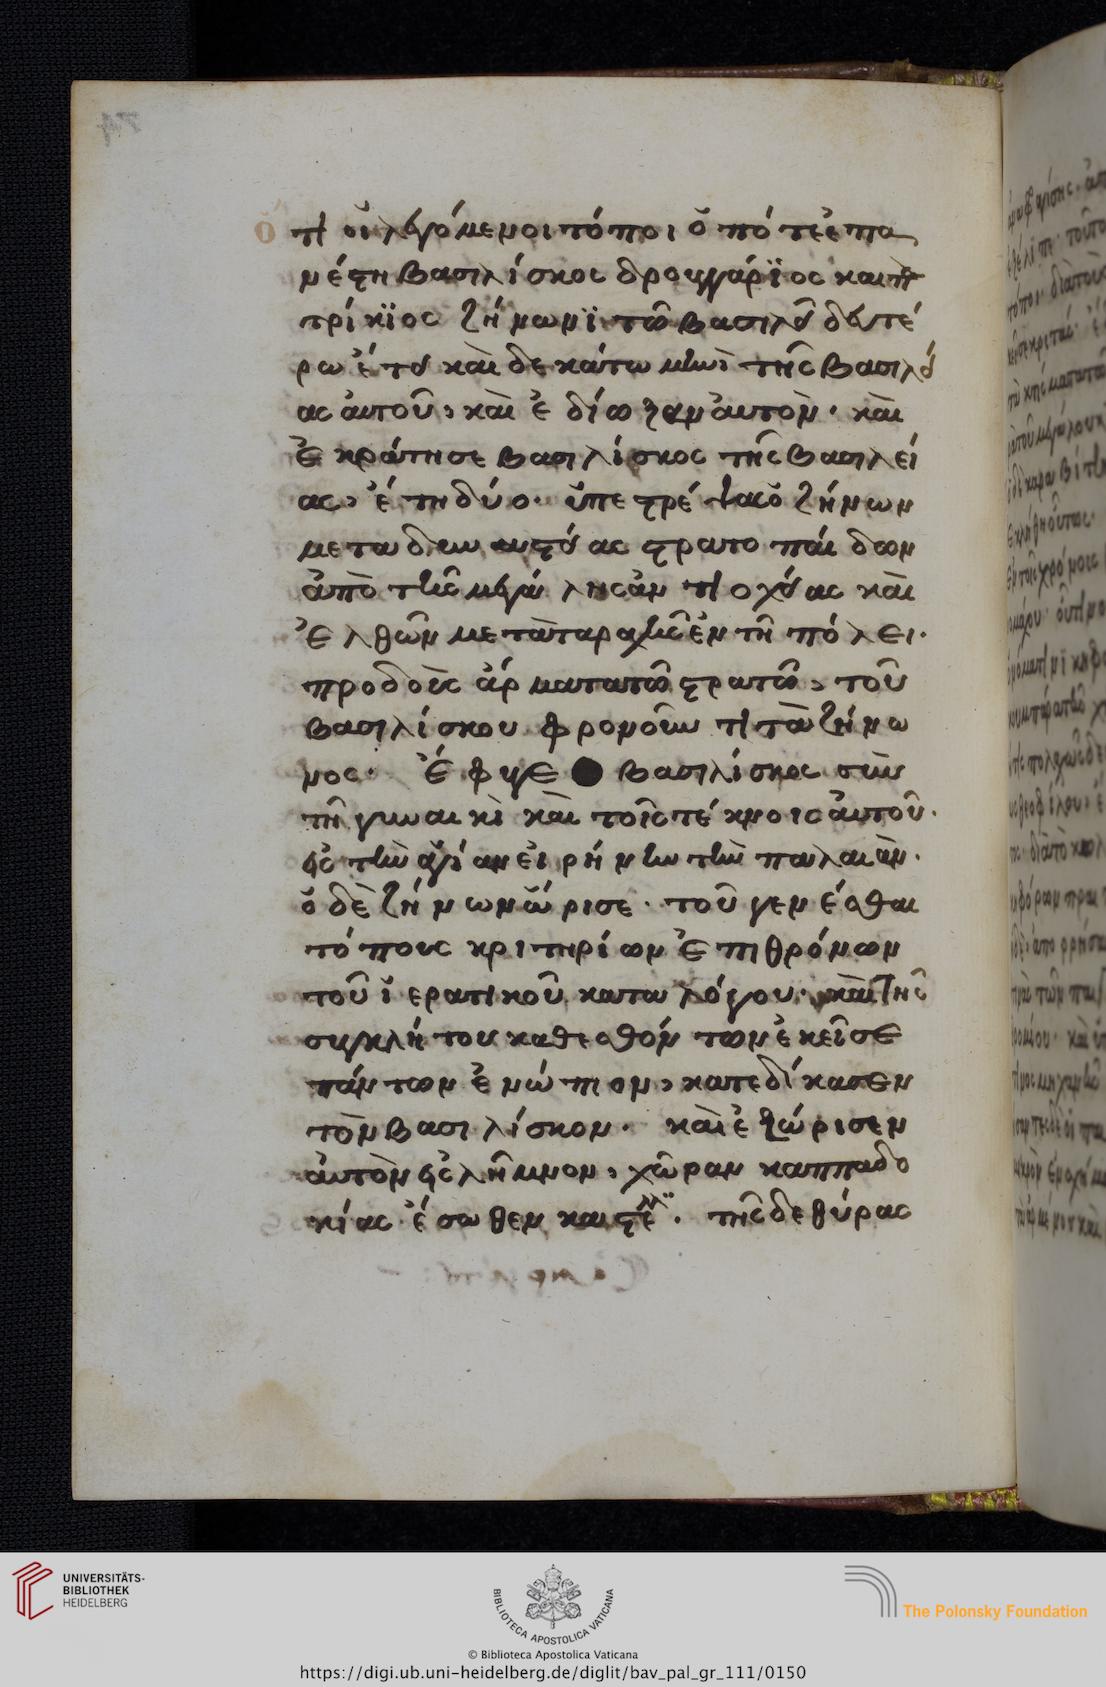 τι οἱ λεγόμενοι τόποι ὁπότε ἐπα
νέστη βασιλίσκος δρουγγάριος και πα
τρίκϊος ζήνωνϊ τῶ βασιλεῖ δευτέ
ρω ἔτει καὶ δεκάτω μηνὶ τῆς βασιλεί
ας ἀυτοῦ, καὶ ἐδίωξαν ἀυτὸν· καὶ
ἐκράτησε βασιλίσκος τῆς βασιλεί
ας, ἔτη δύο· ὑπεστρέψας ὁ ζήνων
μετα στρατοπαίδων
ἀπὸ τῆς μεγάλης ἀντιοχείας καὶ
ἐλθὼν μετὰ ταραχῆς ἐν τῆ πόλει·
προδοὺς ἁρματατῶ στρατῶ, τοῦ
βασιλίσκου φρονοῦν τι τὰ ζήνω
νος· ἔφυγε βασιλίσκος σὺν
τῆ γυναικὶ καὶ τοῖς τέκνοις ἀυτοῦ·
εἰς τὴν ἁγίαν εἰρήνην τὴν παλαιὰν·
ὁ δὲ ζήνων ὥρισε· τοῦ γενέσθαι
τόπους κριτηρίων ἐπι θρόνων
τοῦ ἱερατικοῦ καταλόγου· καὶ τῆς
συγκλήτου καθεσθὸν τῶν ἐκεῖσε
πάντων ἐνώπιον, κατεδίκασεν
τὸν βασιλίσκον· καὶ ἐξώρισεν
ἀυτὸν εἰς λῆμνον, χῶραν καππαδο
κίας ἔσωθεν καστέλλϊ· τῆς δε θύρας
UNIVERSITÄTS-
BIBLIOTHEK
HEIDELBERG
BIBLIOTECA APOSTOLICA VATICANA
The Polonsky Foundation
© Biblioteca Apostolica Vaticana
https://digi.ub.uni-heidelberg.de/diglit/bav_pal_gr_111/0150